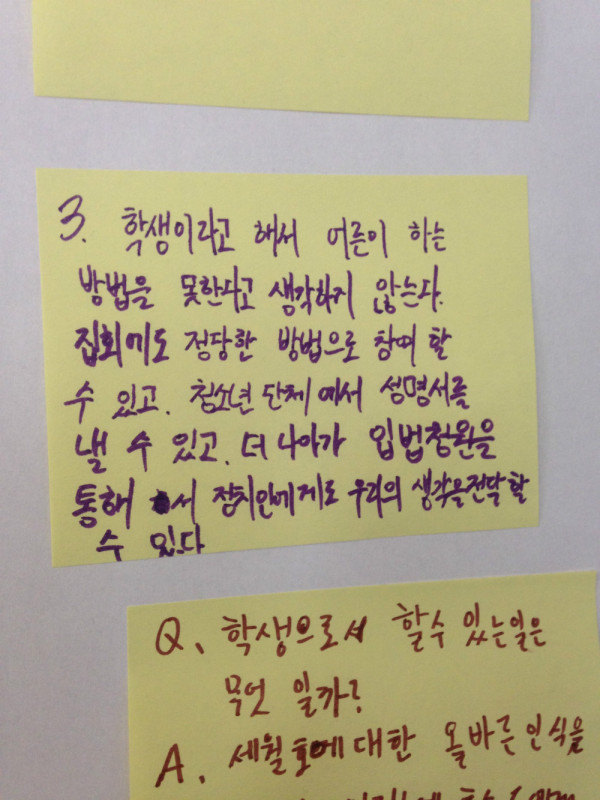 3. 학생이라고 해서 어른이 하는
방법을 못한다고 생각하지 않는다.
집회에도 정당한 방법으로 참여 할
수 있고, 청소년 단체에서 성명서를
낼 수 있고, 더 나아가 입법청원을
통해 서 정치인에게도 우리의 생각을 전달 할
수 있다
Q. 학생으로서 할수 있는일은
무엇 일까?
A. 세월호에 대한 올바른 인식을